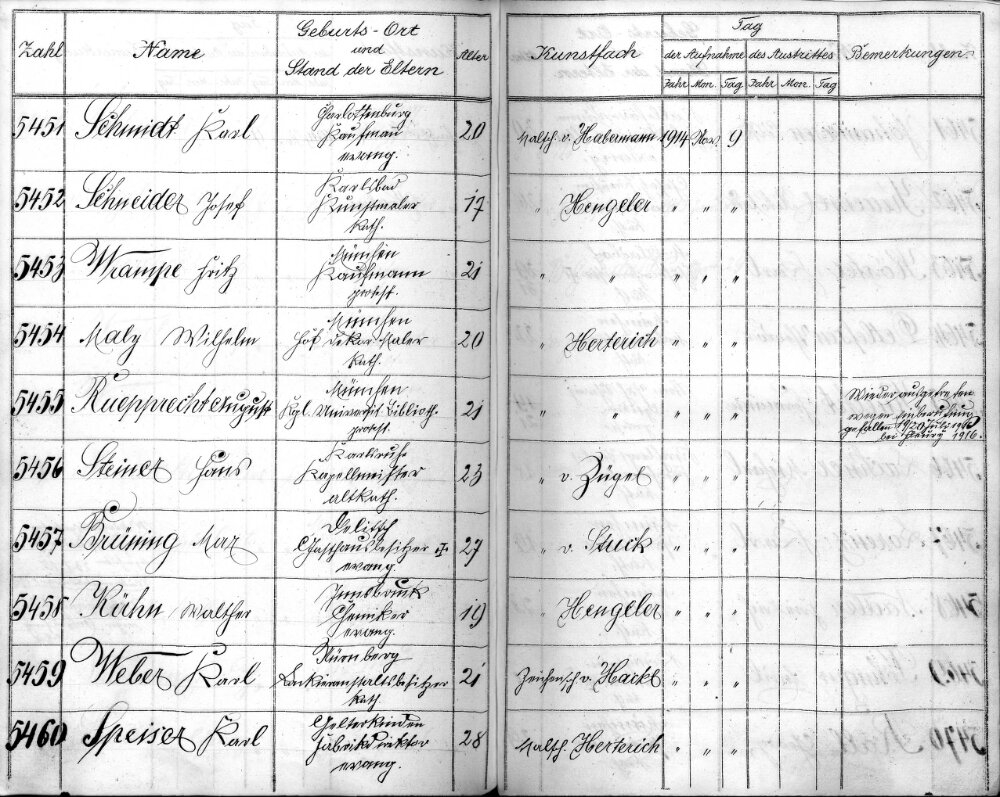 Zahl Name Geburts-Ort und Stand der Eltern Alter Kunstfach Tag der Aufnahme des Austrittes Bemerkungen.
Jahr Mon. Tag Jahr Mon. Tag
5451 Schmidt Karl Charlottenburg 20 Malsch. v. Habermann 1914 Nov. 9
Kaufmann
evang.
5452 Schneider Josef Karlsbad 17 " Hengeler " " "
Kunstmaler
kath.
5453 Wrampe Fritz München 21 " " " " "
Kaufmann
protest.
5454 Maly Wilhelm München 20 " Herterich " " "
Hof Dekor. Maler
kath.
5455 Ruepprecht August München 21 " " " " "
Kgl. Universit. Biblioth.
protest.
Wieder ausgetreten
wegen Einberufung
gefallen 20 Juli 1916
bei 1916.
5456 Steiner Hans Karlsruhe 23 " v. Zügel " " "
Kapellmeister
altkath.
5457 Brüning Max Delitsch 27 " v. Stuck " " "
Gasthausbesitzer †
evang.
5458 Kühn Walther Innsbruck 19 " Hengeler " " "
Chemiker
evang.
5459 Weber Karl Nürnberg 21 Zeichensch. v. Hackl " " "
Lackieranstaltsbesitzer
kath.
5460 Speiser Karl Gelterkinden 28 Malsch. Herterich " " "
Fabrikdirektor
evang.